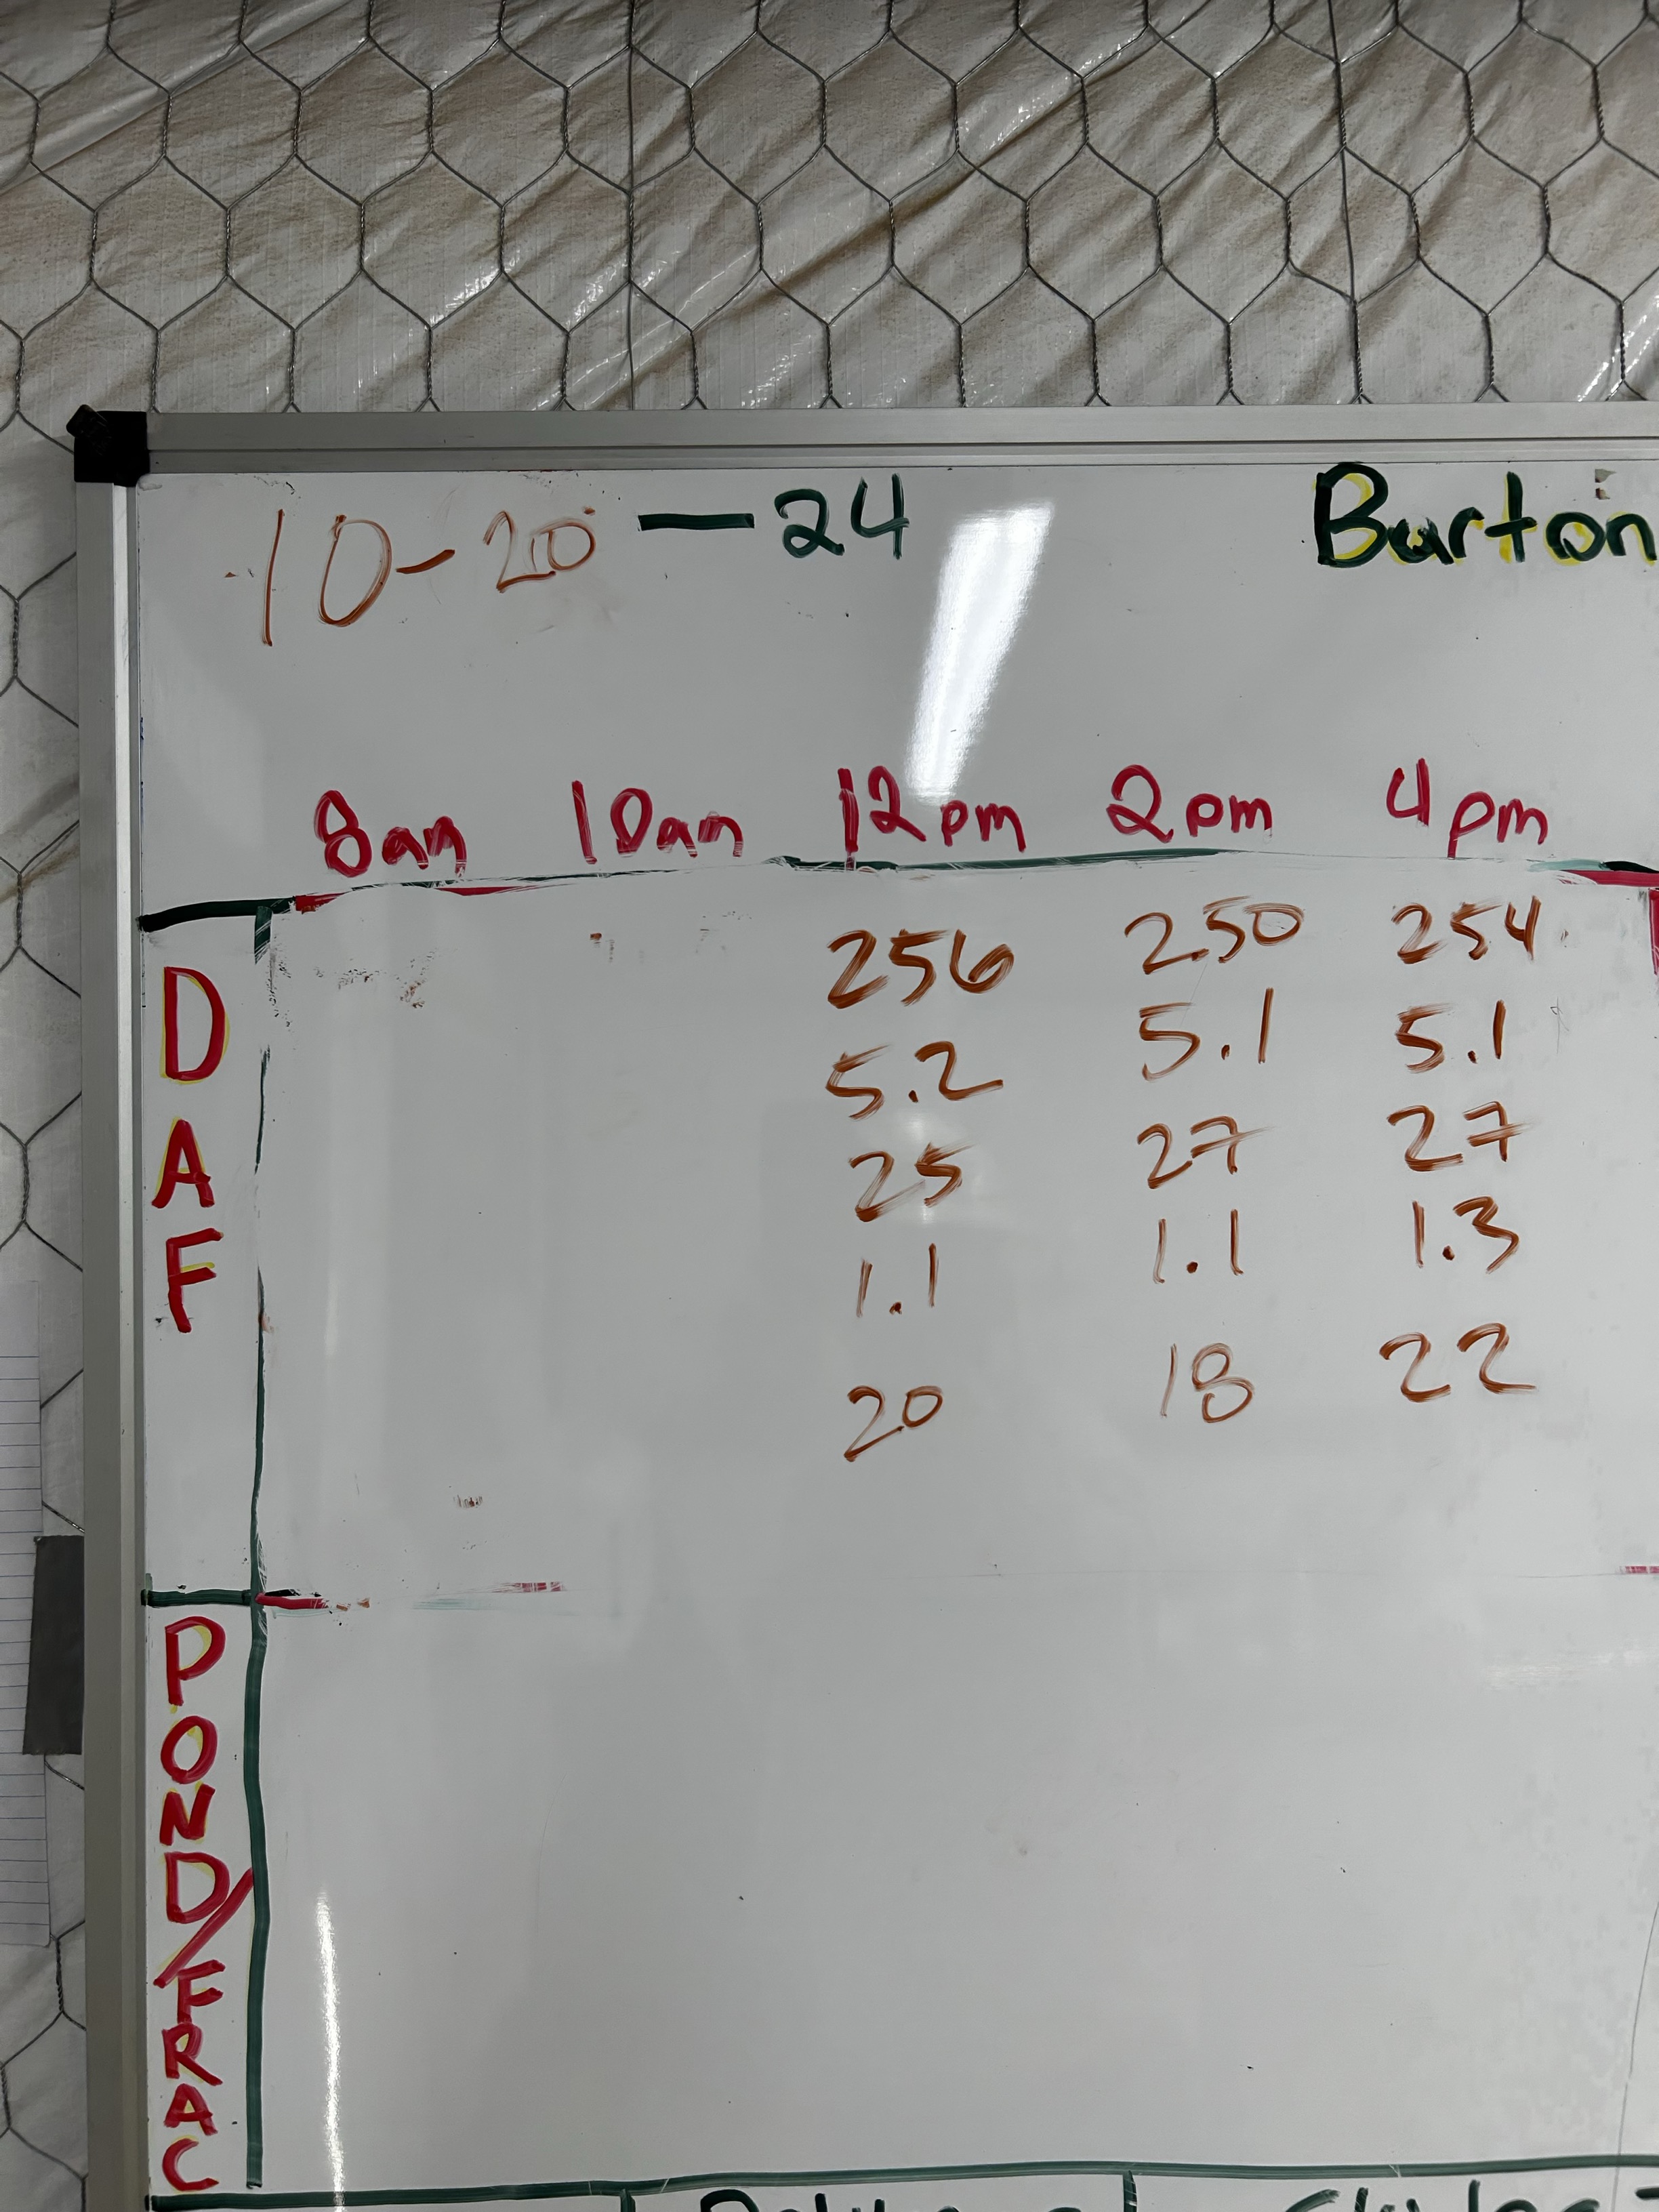 10-20-24 Barton
8am 10am 12pm 2pm 4pm
DAF
256 250 254
5.2 5.1 5.1
25 27 27
1.1 1.1 1.3
20 18 22
POND/FRAC